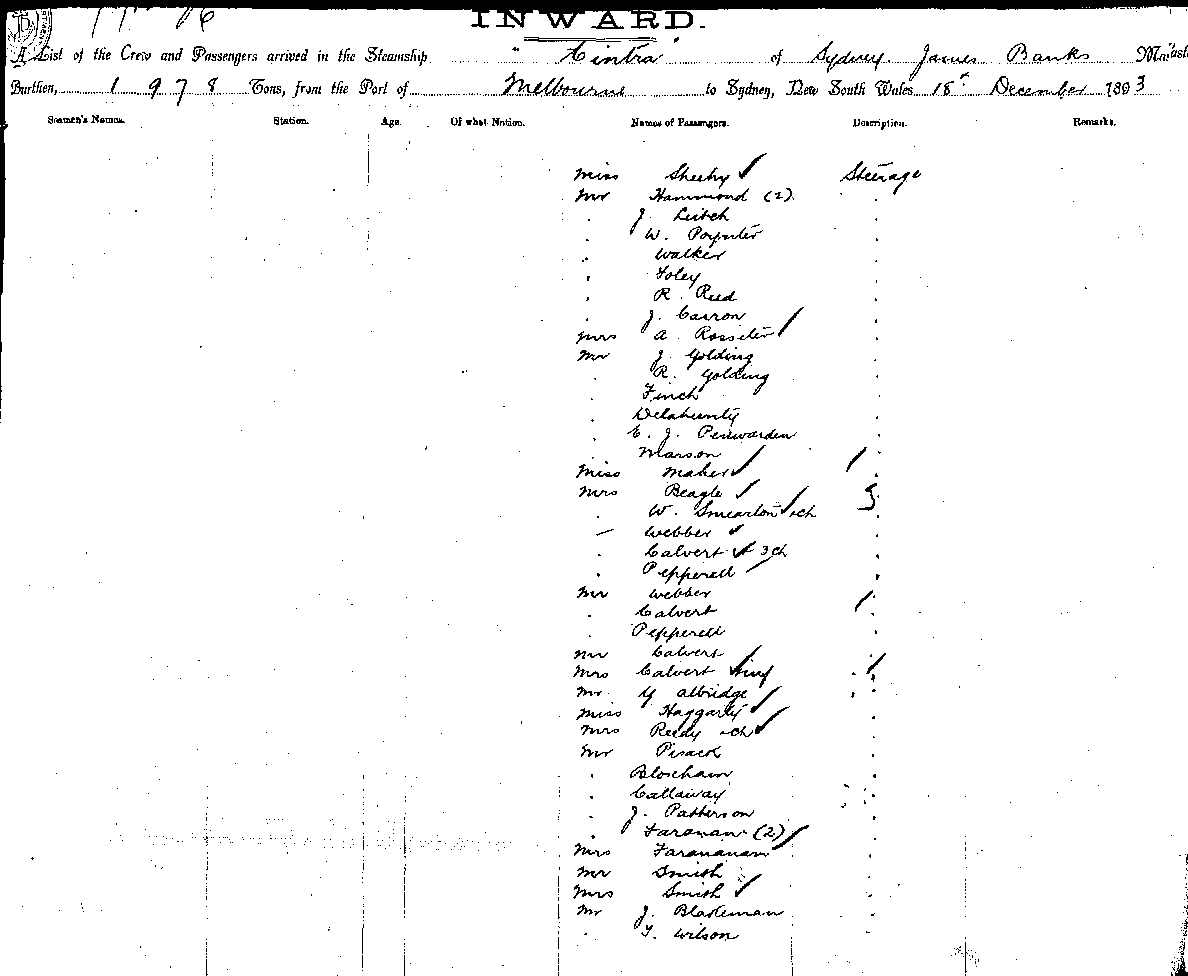 INWARD.
A List of the Crew and Passengers arrived in the Steamship "Cintra" of Sydney James Banks Master
Burthen, 1978 Tons, from the Port of Melbourne to Sydney, New South Wales 18th December 1893
Seamen's Names. Station. Age. Of what Nation. Names of Passengers. Description. Remarks.
Miss Sheehy Steerage
Mr Hammond (2) .
. J. Leitch .
. W. Poynter .
. Walker .
. Foley .
. R. Reed .
. J. Carron .
Mrs A. Rossiter .
Mr J. Golding .
. R. Golding .
. Finch .
. Delahunty .
. E. J. Penwarden .
. Marson .
Miss Maher .
Mrs Beagle .
. W. Smearton ch .
— Webber .
. Calvert + 3 ch .
. Pepperell .
Mr Webber .
. Calvert .
. Pepperell .
Mr Calvert .
Mrs Calvert inf .
Mr albridge .
Miss Haggarty .
Mrs Reedy ch .
Mr Pisack .
. Bloxham .
. Callaway .
. J. Patterson .
. Faranan (2) .
Mrs Farananan .
Mr Smith .
Mrs Smith .
Mr J. Blakeman .
. T. Wilson .